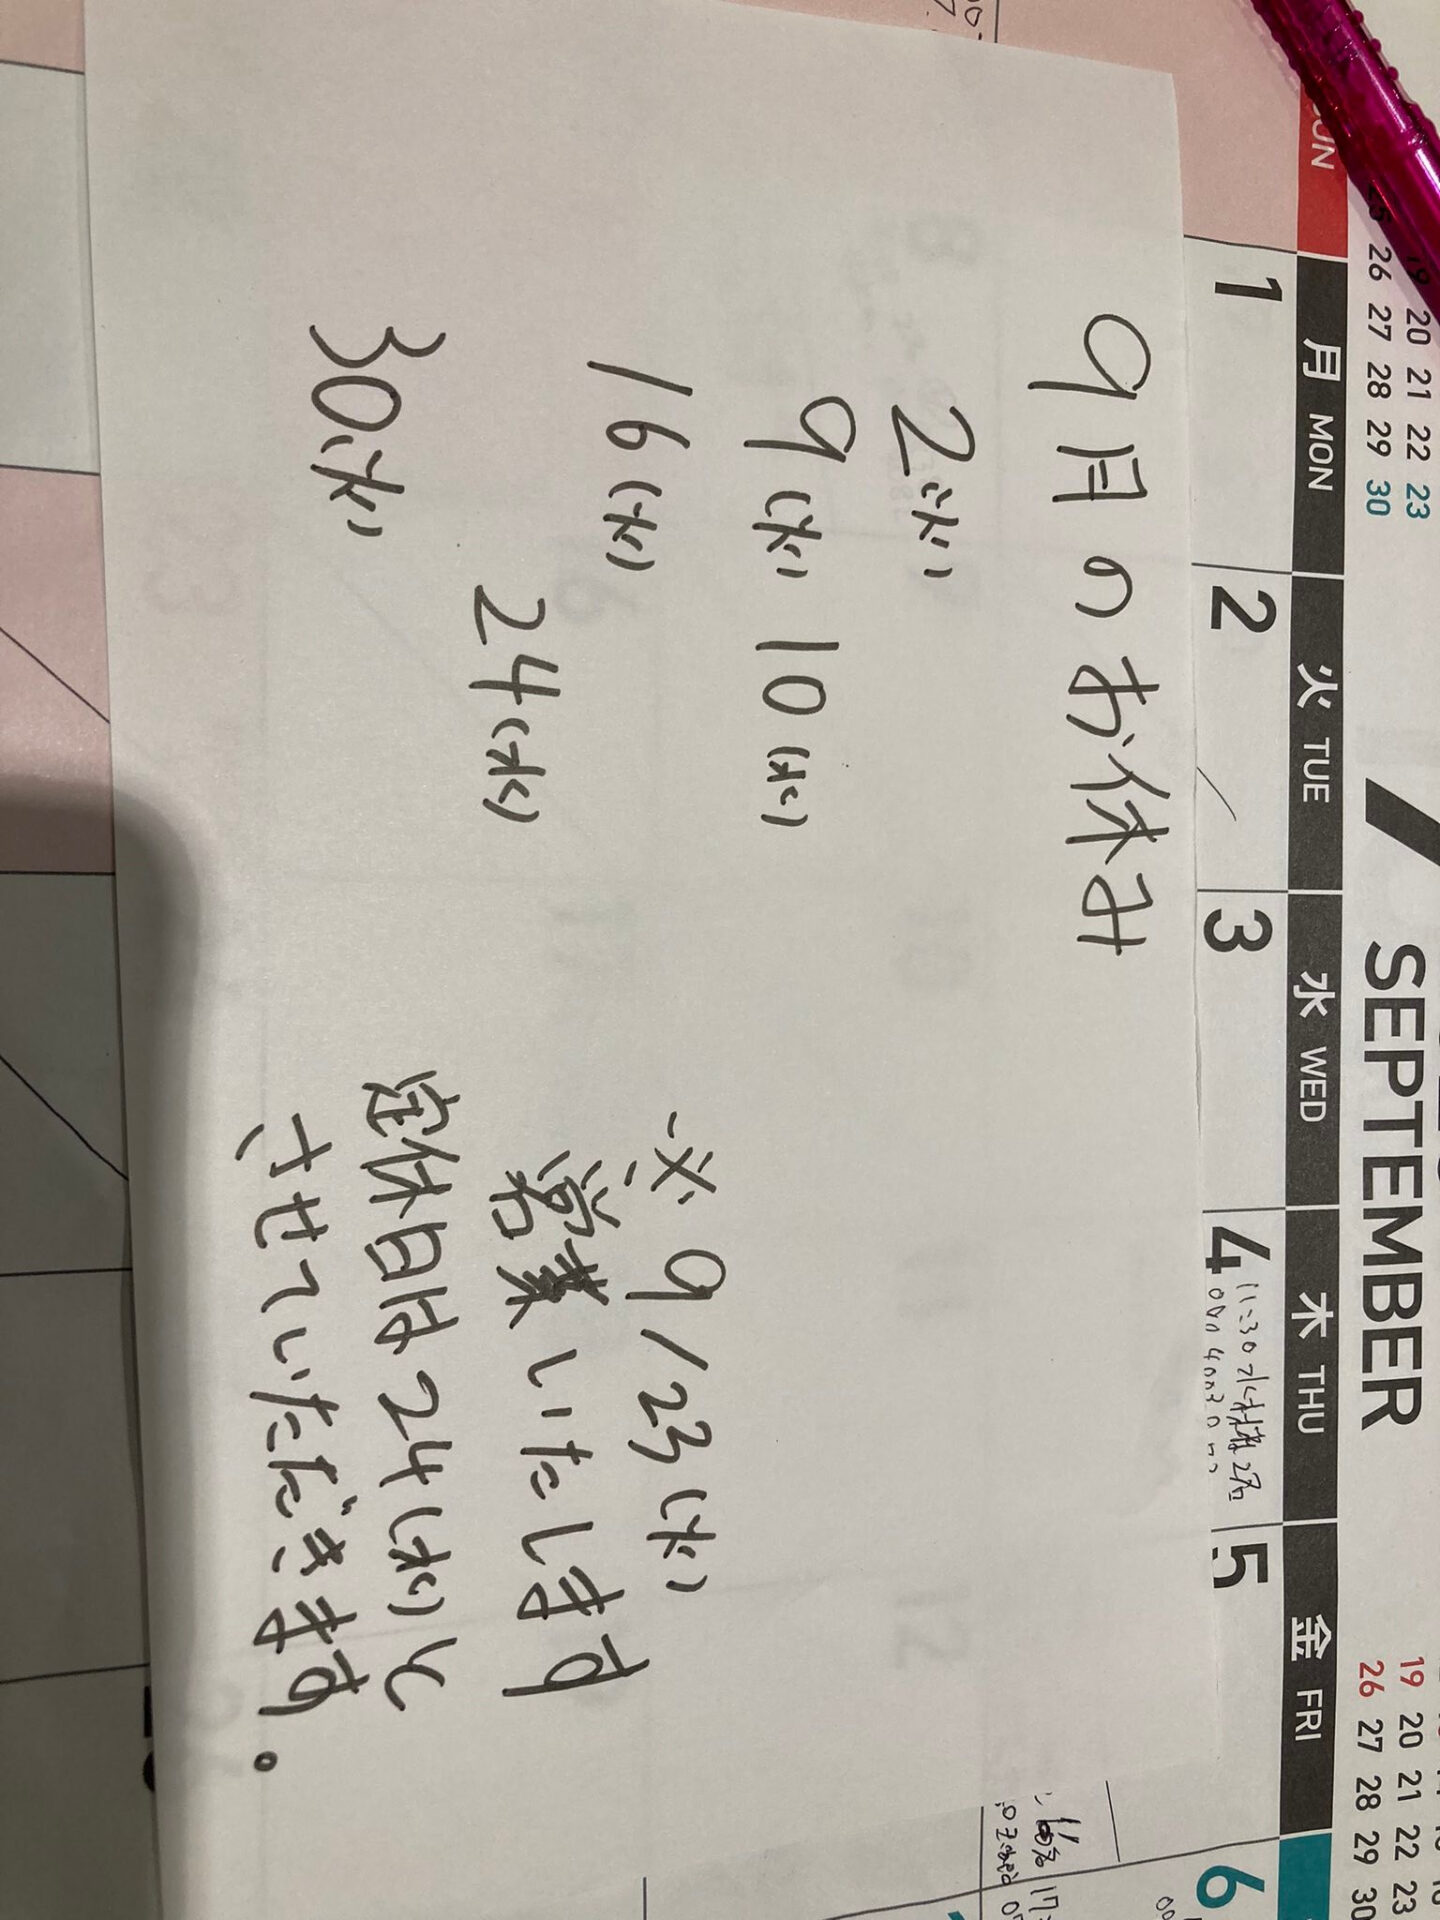 SEPTEMBER
20 21 22 23
26 27 28 29 30
19 20 21 22 23
26 27 28 29 30
SUN 月 MON 火 TUE 水 WED 木 THU 金 FRI
1 2 3 4 5 6
9月のお休み
2(火)
9(火) 10(水)
16(火)
24(水)
30(火)
※9/23(火)
営業いたします
定休日は24(水)と
させていただきます。